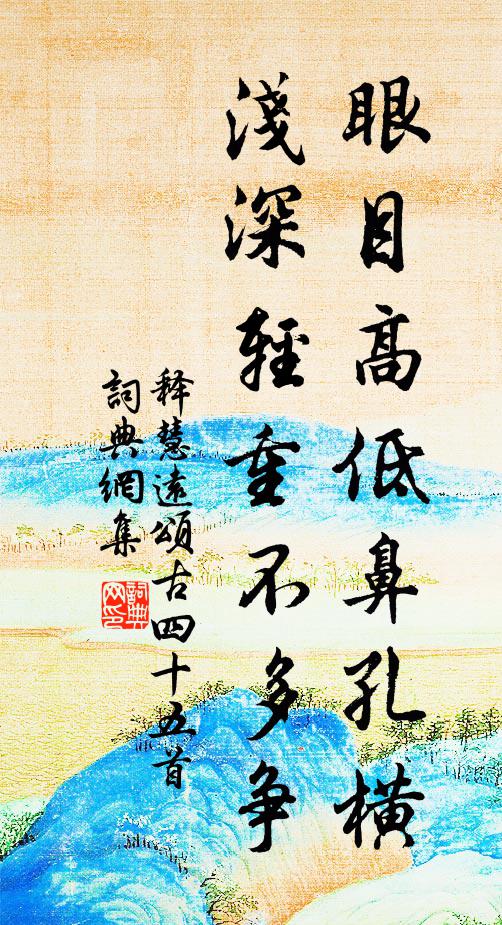 眼目高低鼻孔橫
淺深輕重不多爭
释慧遠頌古四十五首
詞典網集
詞典